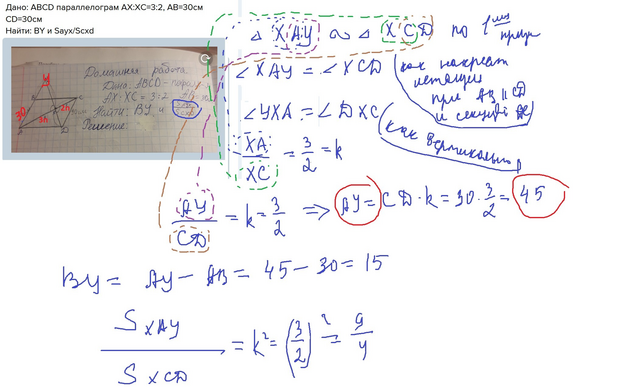 Дано: ABCD параллелограм AX:XC=3:2, AB=30см
CD=30см
Найти: BY и Sayx/Scxd
Домашняя работа
Дано: ABCD - пар
AX:XC = 3:2
Найти: BY и
Решение:
△ XAY ∾ △ XCD по 1
∠ XAY = ∠ XCD (как накрест
лежащие
при AB || CD
и секущей AC)
∠ YXA = ∠ DXC (как вертикальн
XA/XC = 3/2 = k
AY/CD = k = 3/2 => AY = CD · k = 30 · 3/2 = 45
BY = AY - AB = 45 - 30 = 15
S XAY / S XCD = k² = (3/2)² = 9/4